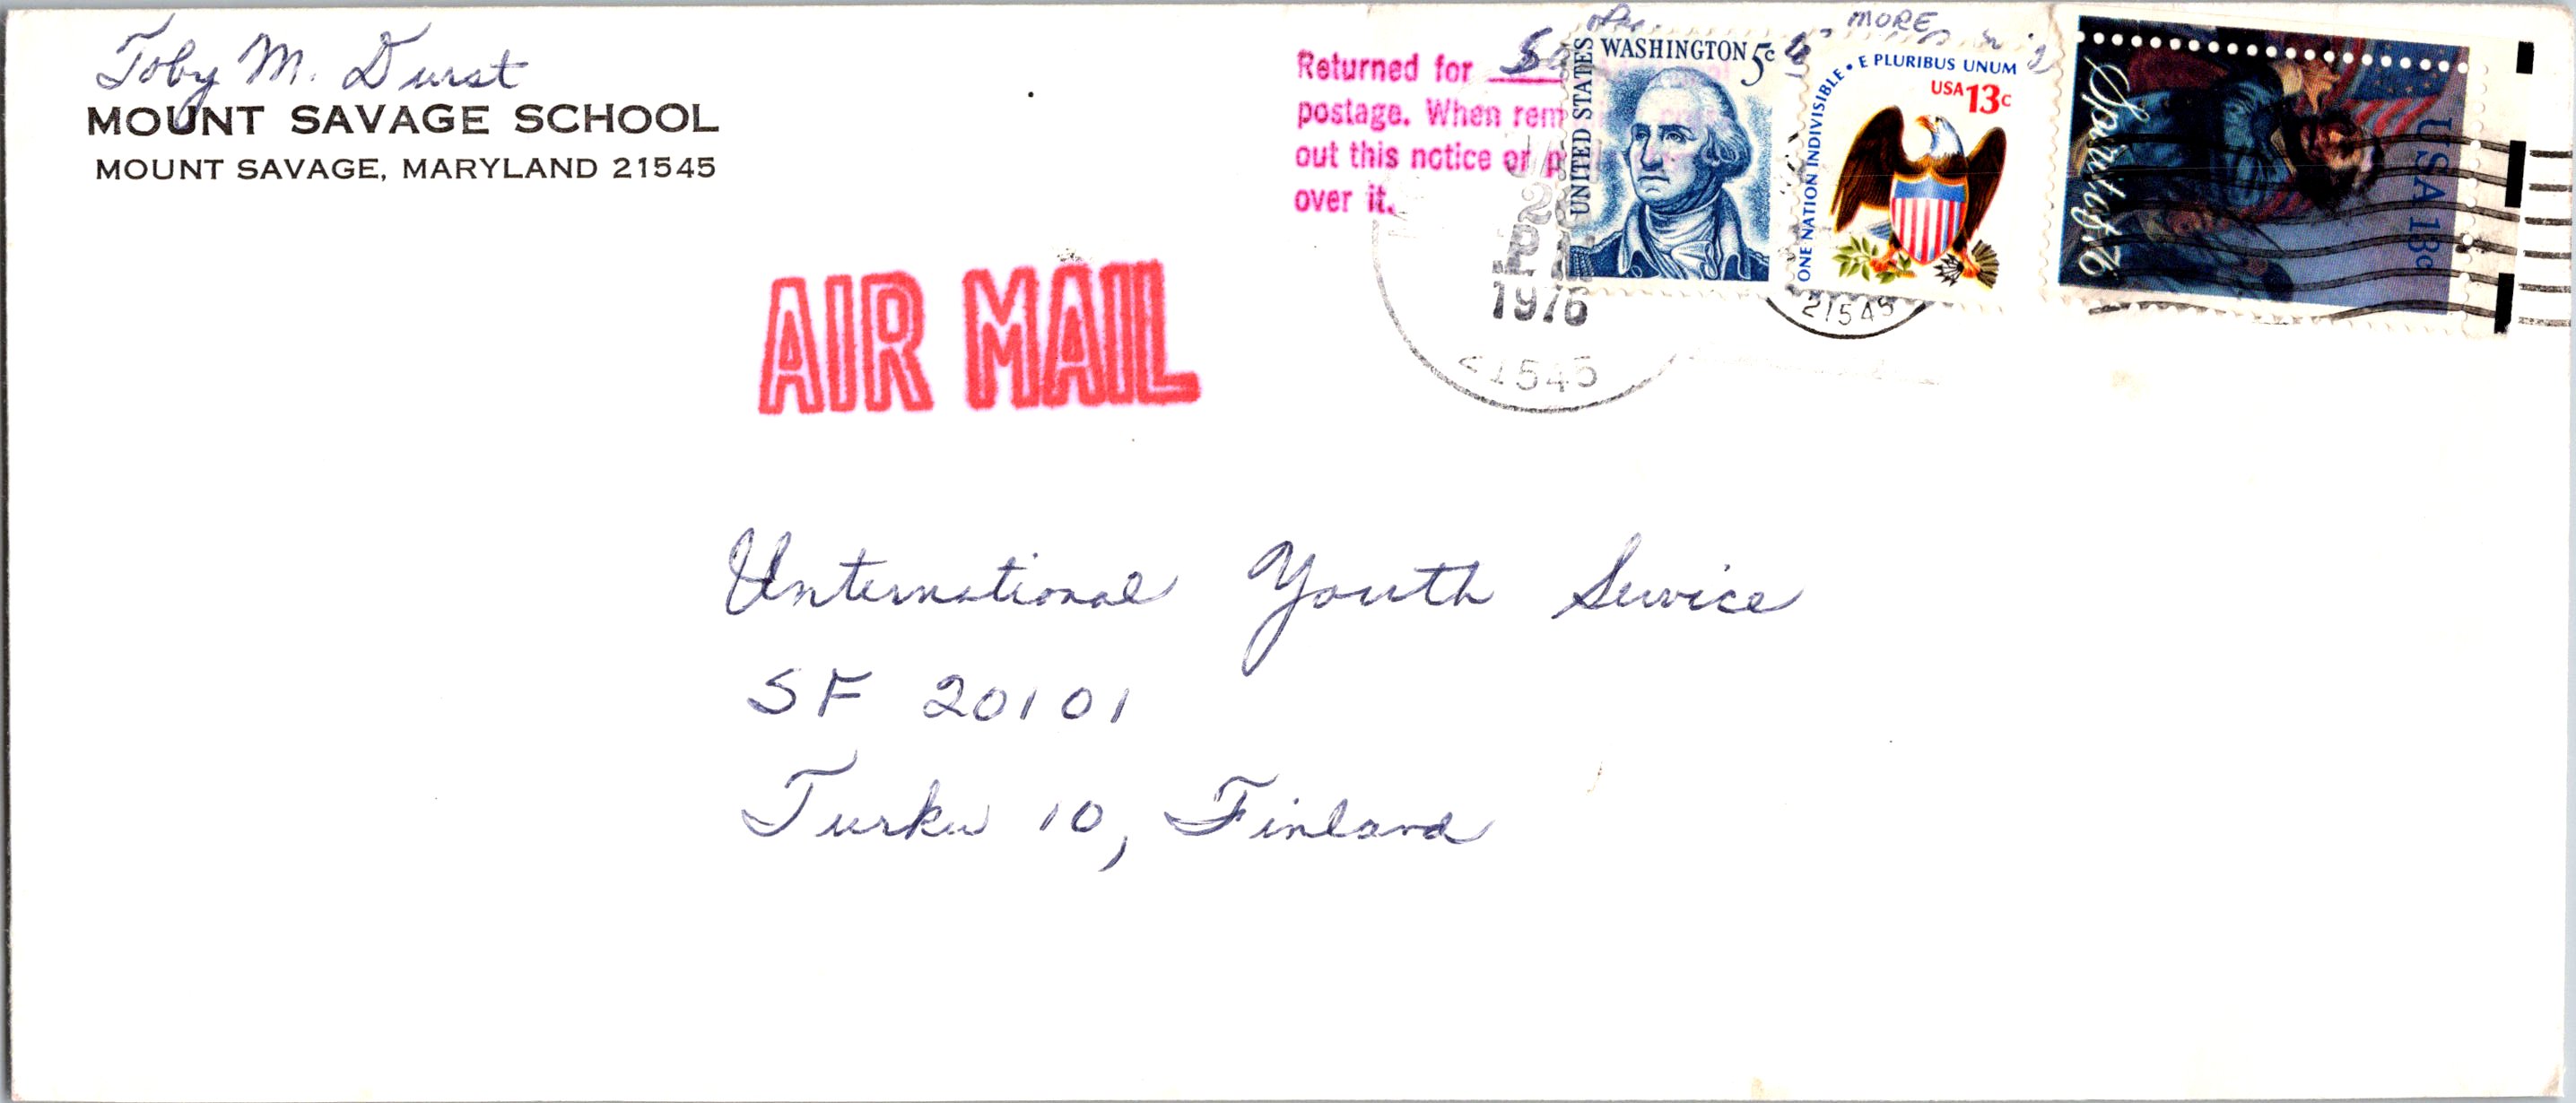 Toby M. Durst
MOUNT SAVAGE SCHOOL
MOUNT SAVAGE, MARYLAND 21545
Returned for
postage. When rem
out this notice or p
over it.
MORE
UNITED STATES
WASHINGTON 5c
ONE NATION INDIVISIBLE • E PLURIBUS UNUM
USA 13c
Spirit of 76
USA 13c
1976
21545
21545
AIR MAIL
International Youth Service
SF 20101
Turku 10, Finland